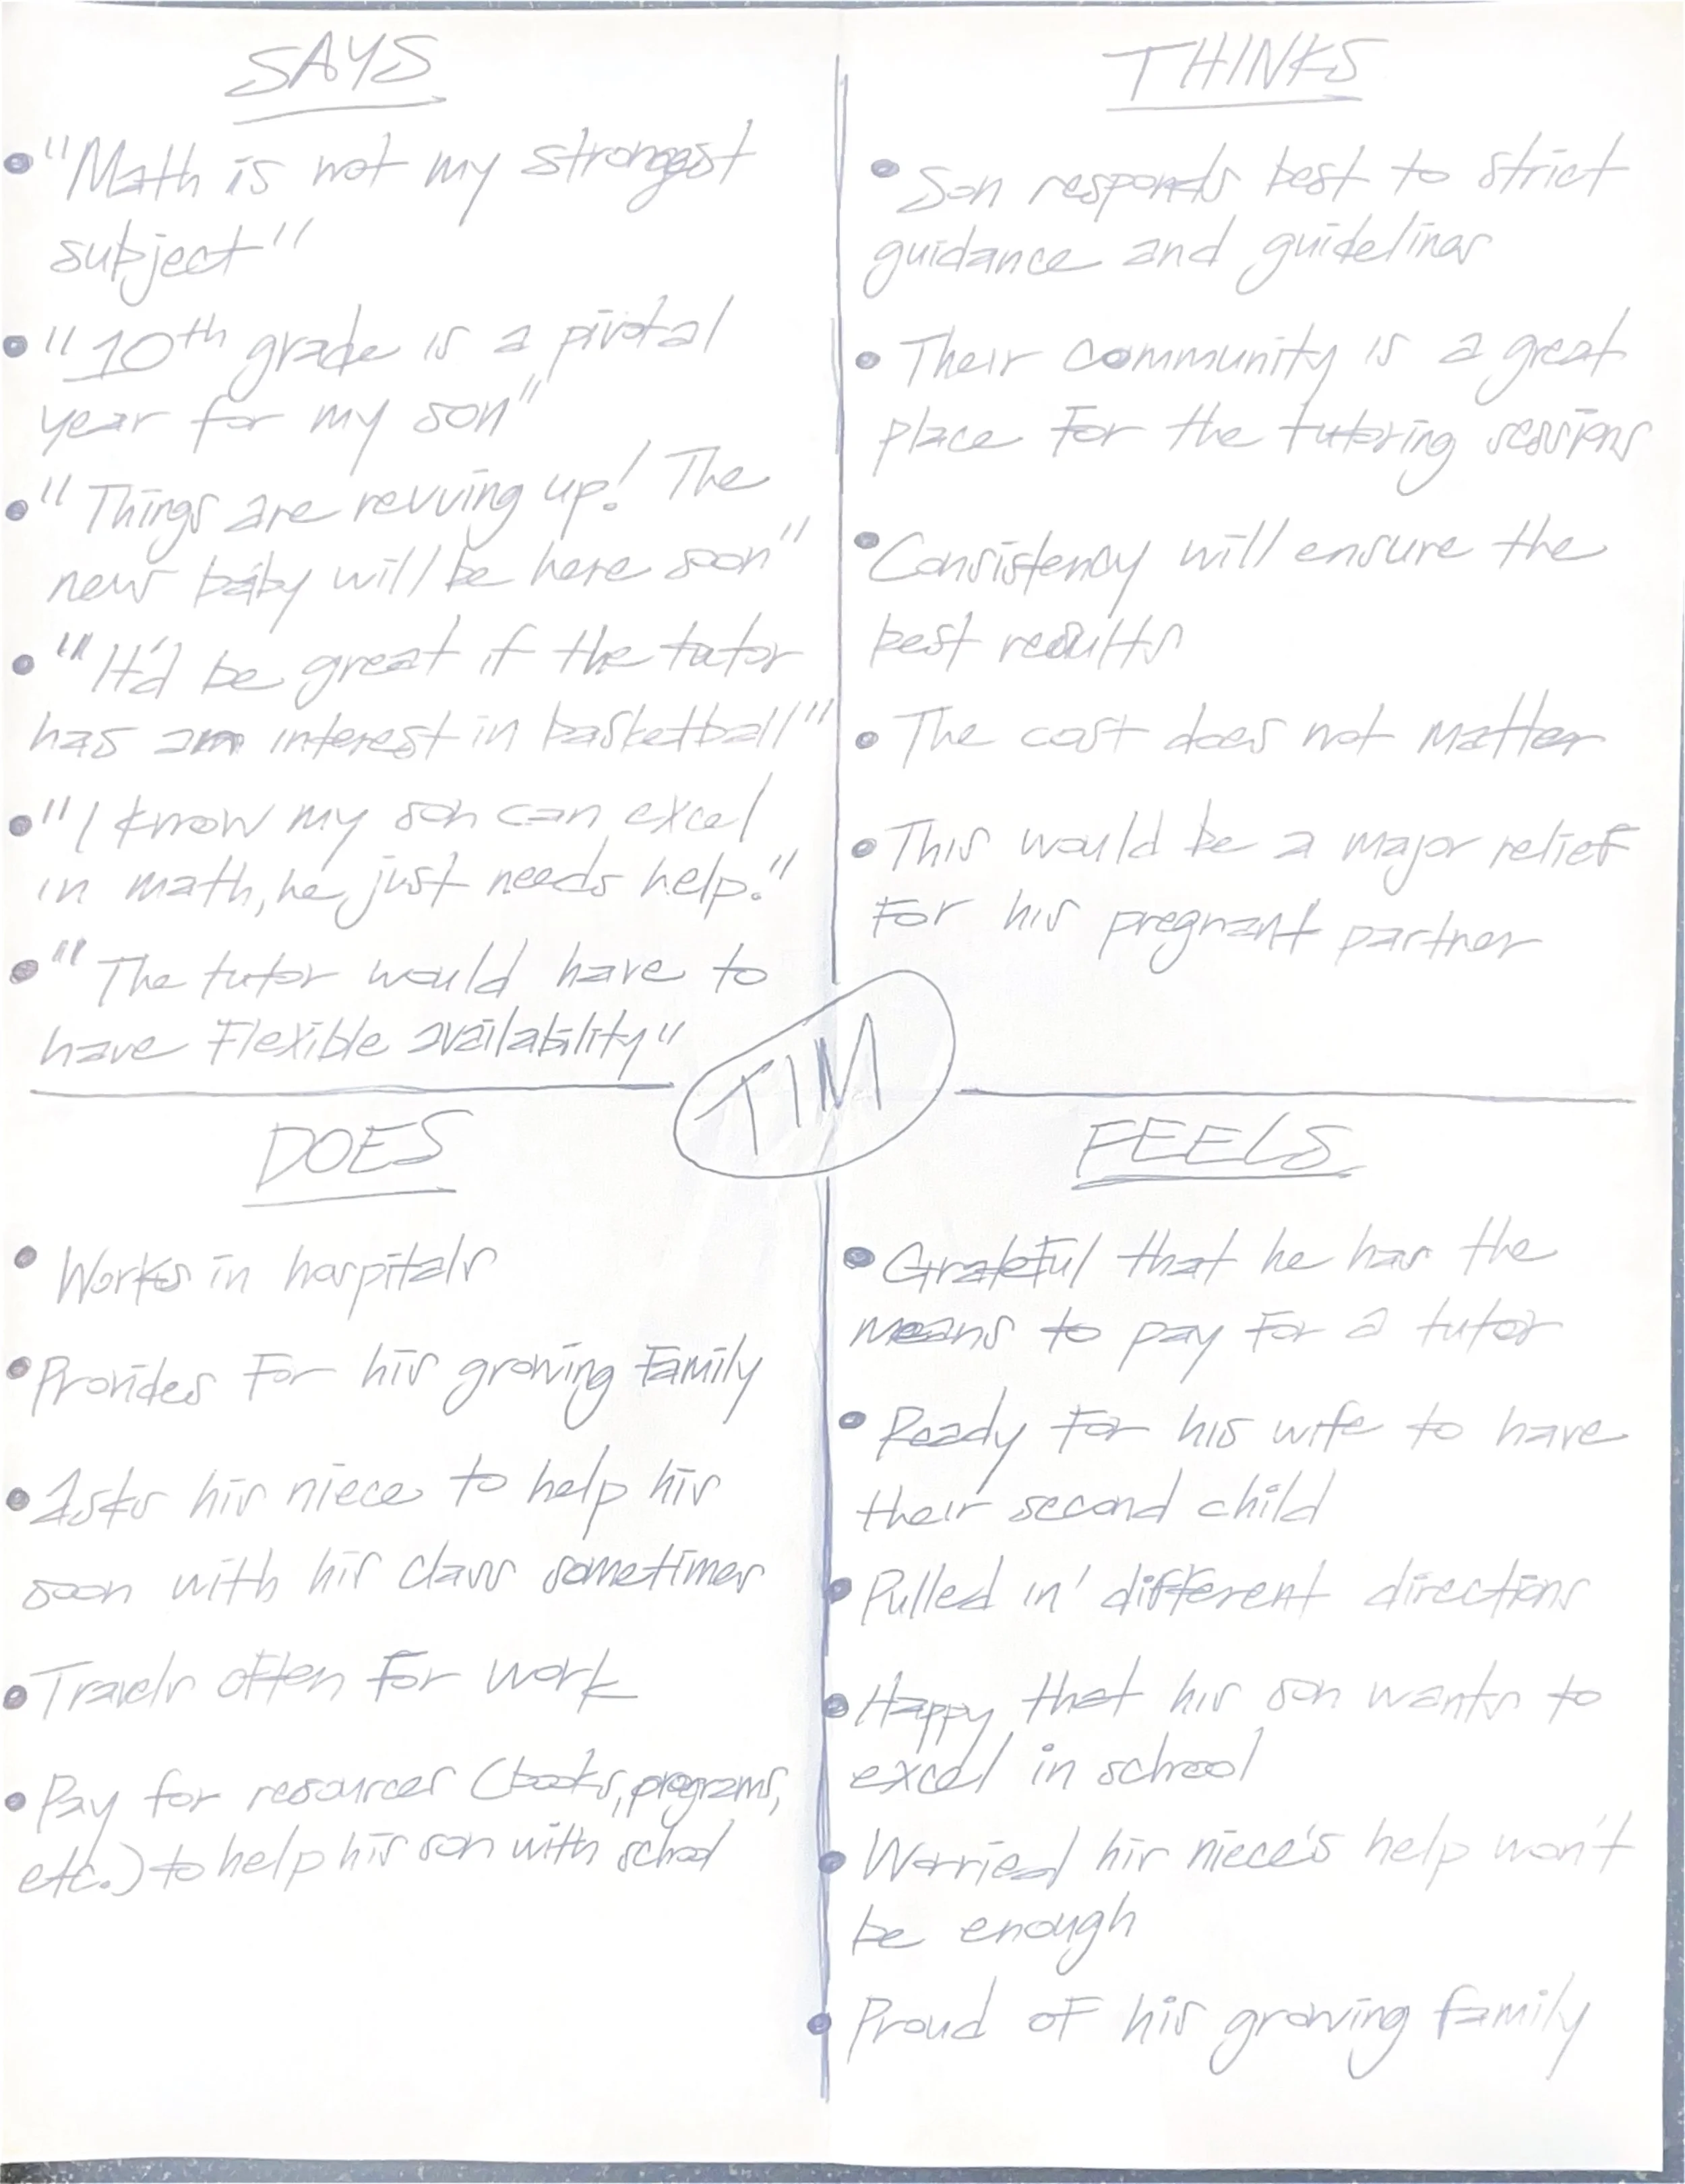 SAYS
• "Math is not my strongest
subject"
• "10th grade is a pivotal
year for my son"
• "Things are revving up! The
new baby will be here soon"
• "It'd be great if the tutor
has an interest in basketball"
• "I know my son can excel
in math, he just needs help."
• "The tutor would have to
have flexible availability"
THINKS
• Son responds best to strict
guidance and guidelines
• Their community is a great
place for the tutoring sessions
• Consistency will ensure the
best results
• The cost does not matter
• This would be a major relief
for his pregnant partner
TIM
DOES
• Works in hospitals
• Provides for his growing family
• Asks his niece to help his
soon with his class sometimes
• Travels often for work
• Pay for resources (books, programs,
etc.) to help his son with school
FEELS
• Grateful that he has the
means to pay for a tutor
• Ready for his wife to have
their second child
• Pulled in different directions
• Happy that his son wants to
excel in school
• Worried his niece's help won't
be enough
• Proud of his growing family